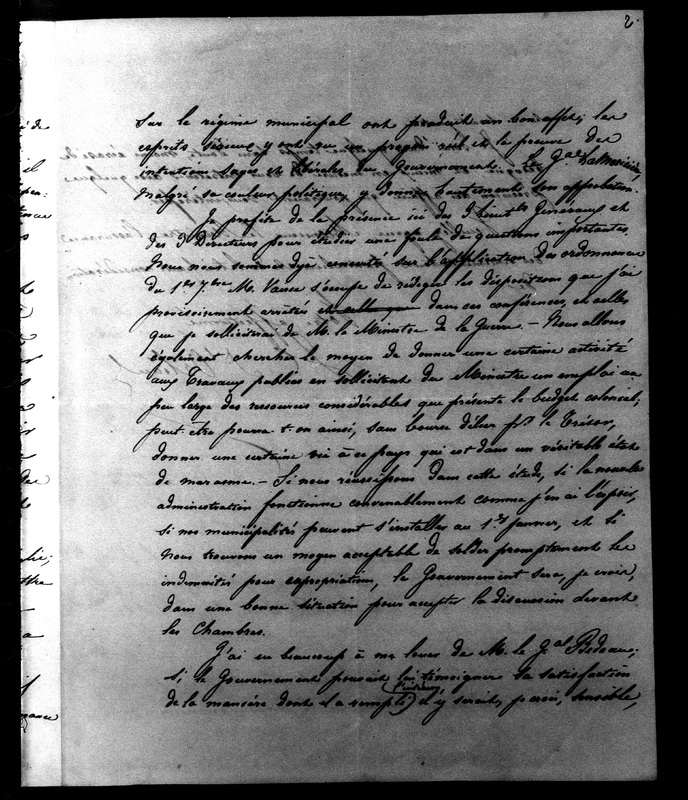 2.
Sur le régime municipal ont produit un bon effet; les
esprits sérieux y ont vu un progrès réel et la preuve des
intentions sages et libérales du Gouvernement. Le Gal Lamoricière,
malgré sa couleur politique, y donne hautement son approbation.
Je profite de la présence ici des 3 Lieutts Généraux et
des 3 Directeurs pour étudier une foule de questions importantes.
Nous nous sommes déjà concertés sur l'application des ordonnances
du 1er 7bre. M. Vaïsse s'occupe de rédiger les dispositions que j'ai
provisoirement arrêtés dans ces conférences, et celles
que je solliciterai de M. le Ministre de la Guerre. — Nous allons
également chercher le moyen de donner une certaine activité
aux Travaux publics en sollicitant du Ministre un emploi un
peu large des ressources considérables que présente le budget colonial;
peut-être pourra-t-on ainsi, sans bourse délier pr le Trésor,
donner une certaine vie à ce pays qui est dans un véritable état
de marasme. — Si nous réussissons dans cette étude, si la nouvelle
administration fonctionne convenablement comme j'en ai l'espoir,
si nos municipalités peuvent s'installer au 1er Janvier, et si
nous trouvons un moyen acceptable de solder promptement les
indemnités pour expropriation, le Gouvernement sera, je crois,
dans une bonne situation pour accepter la discussion devant
les Chambres.
J'ai eu beaucoup à me louer de M. le Gal Bedeau;
si le Gouvernement pouvait lui témoigner sa satisfaction
de la manière dont il a rempli l'intérim, il y serait, je crois, sensible,